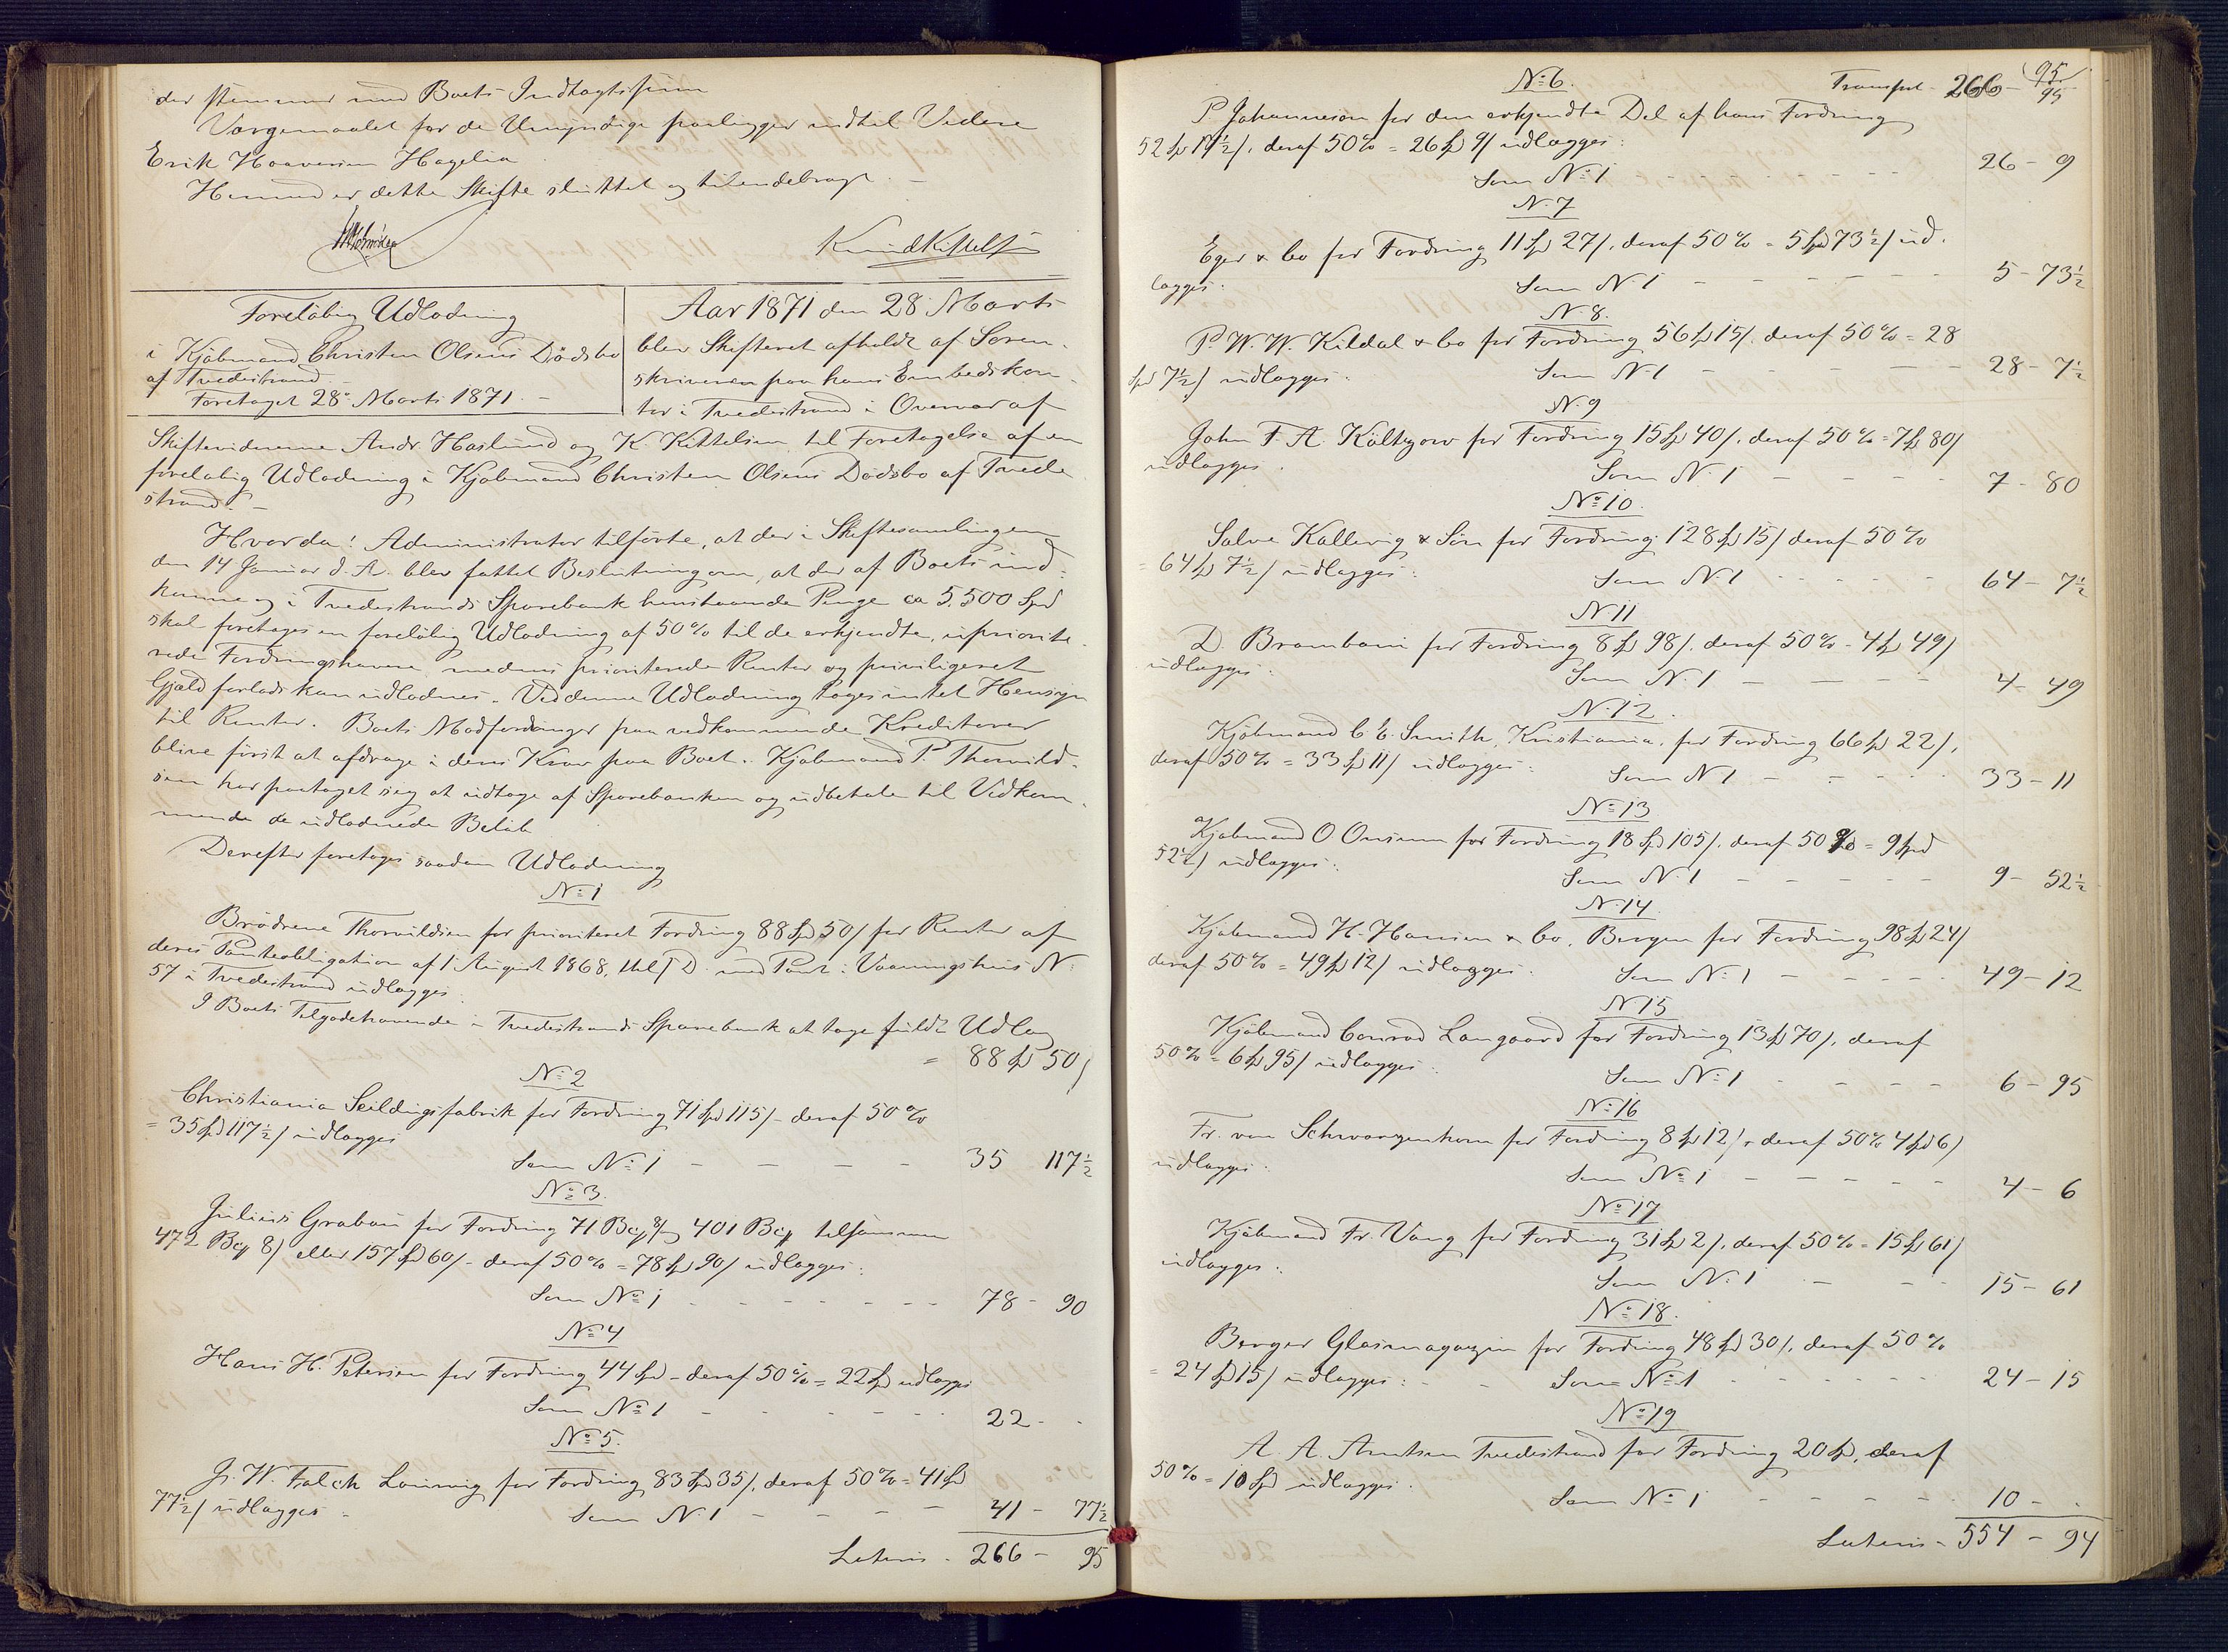 der stemmer med Boets Indtægtssum
Værgemaalet for de Umyndige paalægger indtil Videre
Erik Haaversen Hagelia
Hermed er dette Skifte sluttet og tilendebragt.
Knud Kittelsen
Foreløbig Udlodning
i Kjøbmand Christen Olsens Dødsbo
af Tvedestrand
Foretaget 28de Marts 1871. –
Aar 1871 den 28 Marts
blev Skifteret afholdt af Soren-
skriveren paa hans Embedskon-
tor i Tvedestrand i Overvær af
Skiftevidnerne Andr. Haslund og K. Kittelsen til Foretagelse af en
foreløbig Udlodning i Kjøbmand Christen Olsens Dødsbo af Tvede
strand. –
Hvorda: Administrator tilførte, at der i Skiftesamlingen
den 14 Januar d. A. blev fattet Beslutning om, at der af Boets ind-
komne og i Tvedestrands Sparebank henstaaende Penge ca 5,500 Spd
skal foretages en foreløbig Udlodning af 50% til de erkjendte, uprioite-
rede Fordringshavere, medens prioriterede Renter og priviligeret
Gjæld forlods kan udlodnes. Ved denne Udlodning tages intet Hensyn
til Renter. Boets Modfordringer paa vedkommende Kreditorer
blive først at afdrage i deres Krav paa Boet. Kjøbmand P. Thorvald-
sen har paataget sig at udtage af Sparebanken og udbetale til Vedkom-
mende de udlodnede Beløb
Derefter foretages saadan Udlodning
No 1
Brødrene Thorvildsen for prioriteret Fordring 88 Spd 50 / for Renter af
deres Panteobligation af 1 August 1868, med Pant i Vaaningshus No
57 i Tvedestrand udlægges
I Boets Tilgodehavende i Tvedestrands Sparebank at tage fuldt Udlæg
= 88 Spd 50 /
No 2
Christiania Seildugsfabrik for Fordring 71 Spd 115 / – deraf 50 %
= 35 Spd 117½ / udlægges
Som No 1 – – – – 35 117½
No 3.
Julius Grabau for Fordring 71 Bcp 8 / og 401 Bcp tilsammen
472 Bcp 8 / eller 157 Spd 60 / – deraf 50% = 78 Spd 90 / udlægges:
Som No 1 - - - - - - - 78 - 90
No 4
Hans H. Petersen for Fordring 44 Spd – deraf 50% = 22 Spd udlægges
Som No 1 – - - - - - 22 - .
No 5.
J. W. Falck Lourvig for Fordring 83 Spd 35 /, deraf 50% = 41 Spd
77½ / udlægges
Som No 1 – – – – 41 – 77½
Lateris – 266 – 95
95
No 6. Transpt – 266 – 95
P Johannesen for den erkjendte Del af hans Fordring
52 Spd 17½ /, deraf 50% = 26 Spd 9 / udlægges:
Som No 1 - - - - - - 26 – 9
No 7
Eger & Co for Fordring 11 Spd 27 /, deraf 50% = 5 Spd 73½ / ud-
lægges:
Som No 1 – - - - - 5 – 73½
No 8.
P. W. W. Kildal & Co for Fordring 56 Spd 15 /. deraf 50% = 28
Spd 7½ / udlægges:
Som No 1 – - - – – 28 – 7½
No 9
John F. A. Költzow for Fordring 15 Spd 40 /. deraf 50% = 7 Spd 80 /
udlægges.
Som No 1 – – - - - 7 – 80
No 10.
Salve Kallevig & Søn for Fordring 128 Spd 15 / deraf 50%
= 64 Spd 7½ / udlægges:
Som No 1 - - - - - 64 – 7½
No 11
D. Brambani for Fordring 8 Spd 98 /. deraf 50% – 4 Spd 49 /
udlægges:
Som No 1 – – – - - 4 – 49
No 12.
Kjøbmand C C. Smith, Kristiania, for Fordring 66 Spd 22 /,
deraf 50% = 33 Spd 11 / udlægges:
Som No 1 – – - - 33 – 11
No 13
Kjøbmand O. Onsum for Fordring 18 Spd 105 /. deraf 50 % = 9 Spd
52½ / udlægges:
Som No 1 – – – - - 9 – 52½
No 14
Kjøbmand H. Hansen & Co, Bergen for Fordring 98 Spd 24 /
deraf 50% = 49 Spd 12 / udlægges:
Som No 1 – - - - 49 – 12
No 15
Kjøbmand Conrad Langaard for Fordring 13 Spd 70 /, deraf
50% = 6 Spd 95 / udlægges:
Som No 1 - - - - 6 – 95
No 16
Fr. von Schwarzenhorn for Fordring 8 Spd 12 /, deraf 50% 4 Spd 6 /
udlægges:
Som No 1 – - – - - 4 – 6
No 17
Kjøbmand Fr. Vang for Fordring 31 Spd 2 /, deraf 50% = 15 Spd 61 /
udlægges:
Som No 1 - – - - 15 – 61
No 18.
Berger Glasmagazin for Fordring 48 Spd 30 /, deraf 50 %
= 24 Spd 15 / udlægges:
Som No 1 - - - - - - 24 – 15
No 19
A. A. Arntsen Tvedestrand for Fordring 20 Spd, deraf
50% = 10 Spd udlægges.
Som No 1 - - - - - 10 – .
Lateris – 554 – 94